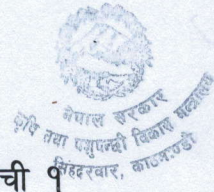 नेपाल सरकार
कृषि तथा पशुपन्छी विकास मन्त्रालय
सिंहदरवार, काठमाण्डौ
ची १